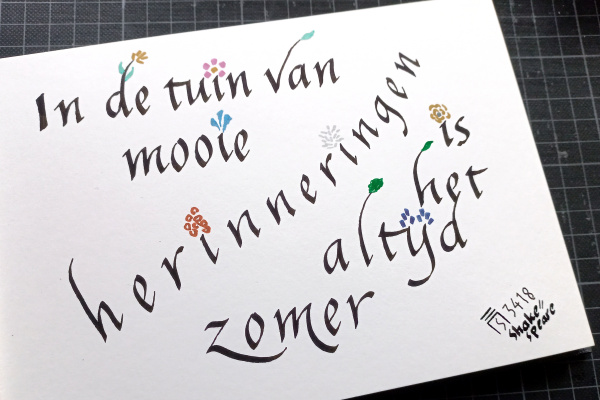 In de tuin van
mooie
herinneringen
is
het
altijd
zomer
3418
shake=
speare